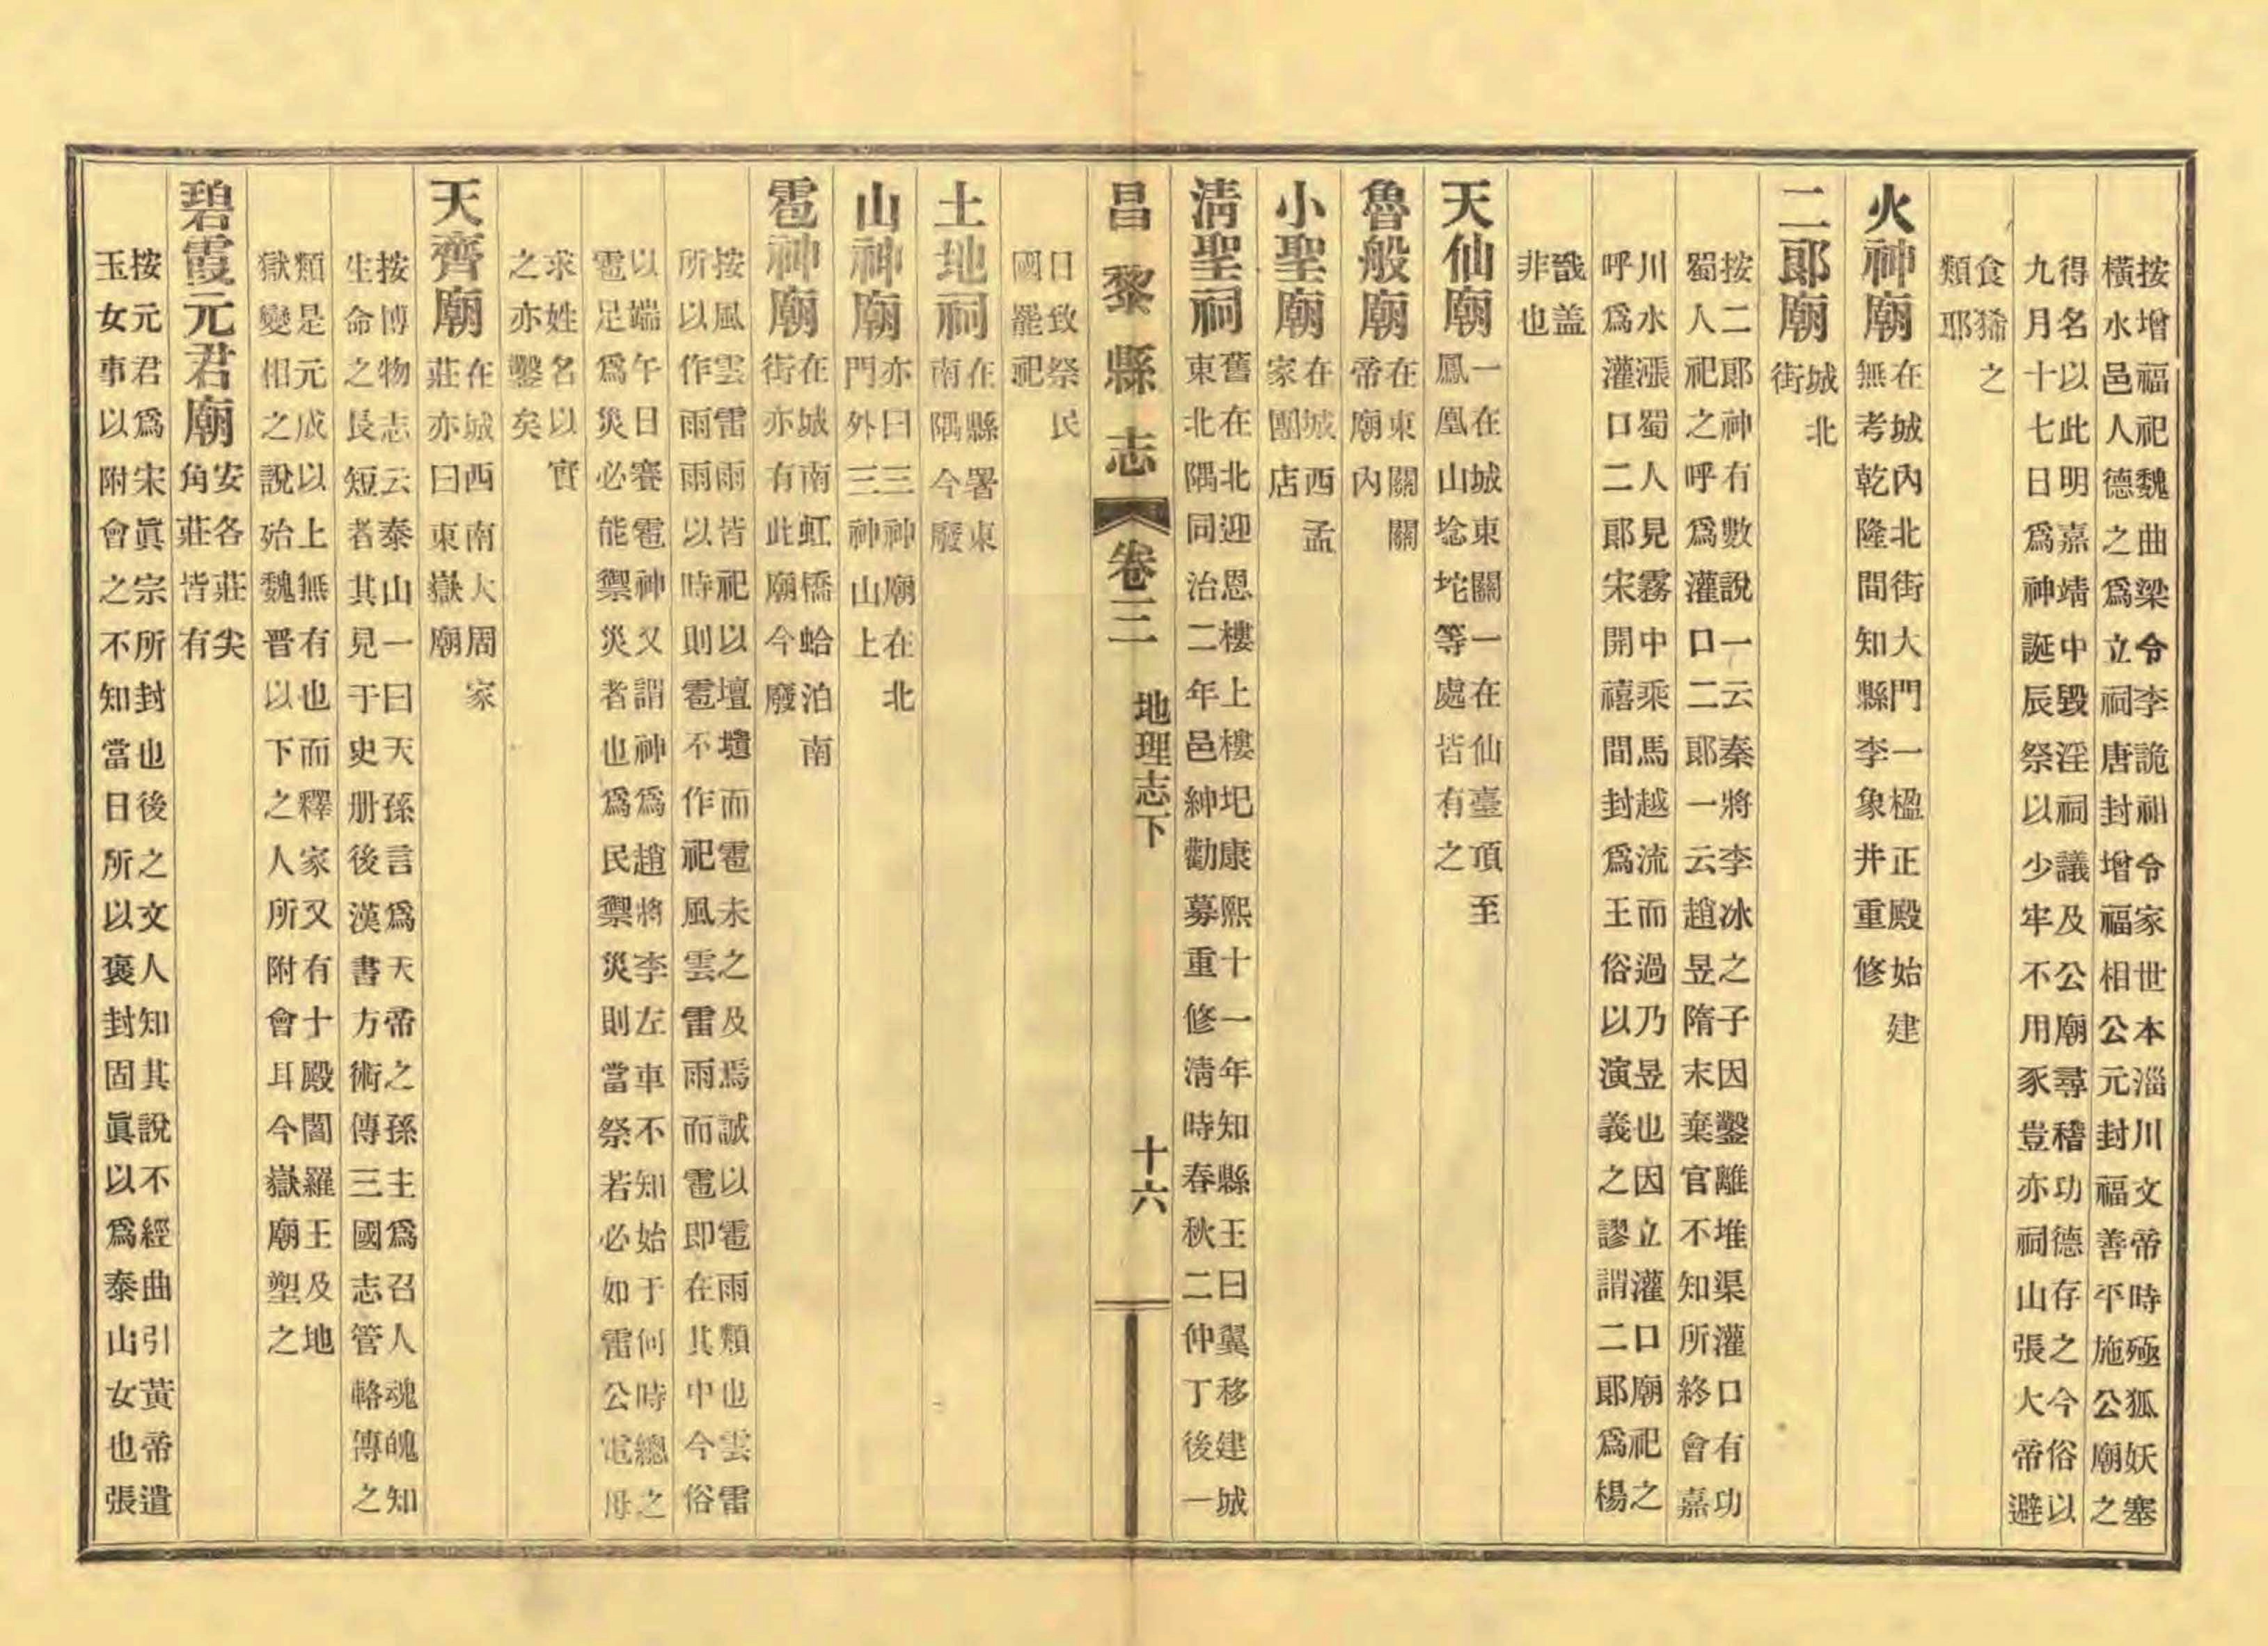 按增福祀魏曲梁令李詭祖令家世本淄川文帝時殛狐妖塞
橫水邑人德之爲立祠唐封增福相公元封福善平施公廟之
得名以此明嘉靖中毀淫祠議及公廟尋稽功德存之今俗以
九月十七日爲神誕辰祭以少牢不用豕豈亦祠山張大帝避
食豨之
類耶
火神廟在城內北街大門一楹正殿始建
無考乾隆間知縣李象井重修
二郎廟城北
街
按二郎神有數說一云秦將李冰之子因鑿離堆渠灌口有功
蜀人祀之呼爲灌口二郎一云趙昱隋末棄官不知所終會嘉
川水漲蜀人見霧中乘馬越流而過乃昱也因立灌口廟祀之
呼爲灌口二郎宋開禧間封爲王俗以演義之謬謂二郎爲楊
戩盖
非也
天仙廟一在城東關一在仙臺頂至
鳳凰山埝坨等處皆有之
魯般廟在東關關
帝廟內
小聖廟在城西孟
家團店
清聖祠舊在北迎恩樓上樓圯康熙十一年知縣王曰翼移建城
東北隅同治二年邑紳勸募重修清時春秋二仲丁後一
日致祭民
國罷祀
昌黎縣志 卷三 地理志下 十六
土地祠在縣署東
南隅今廢
山神廟亦曰三神廟在北
門外三神山上
雹神廟在城南虹橋蛤泊南
街亦有此廟今廢
按風雲雷雨皆祀以壇壝而雹未之及焉誠以雹雨類也雲雷
所以作雨雨以時則雹不作祀風雲雷雨而雹即在其中今俗
以端午日賽雹神又謂神爲趙將李左車不知始于何時總之
雹足爲災必能禦災者也爲民禦災則當祭若必如雷公電母
求姓名以實
之亦鑿矣
天齊廟在城西南大周家
莊亦曰東嶽廟
按博物志云泰山一曰天孫言爲天帝之孫主爲召人魂魄知
生命之長短者其見于史册後漢書方術傳三國志管輅傳之
類是元成以上無有也而釋家又有十殿閻羅王及地
獄變相之說始魏晉以下之人所附會耳今嶽廟塑之
碧霞元君廟安各莊尖
角莊皆有
按元君爲宋眞宗所封也後之文人知其說不經曲引黃帝遣
玉女事以附會之不知當日所以褒封固眞以爲泰山女也張